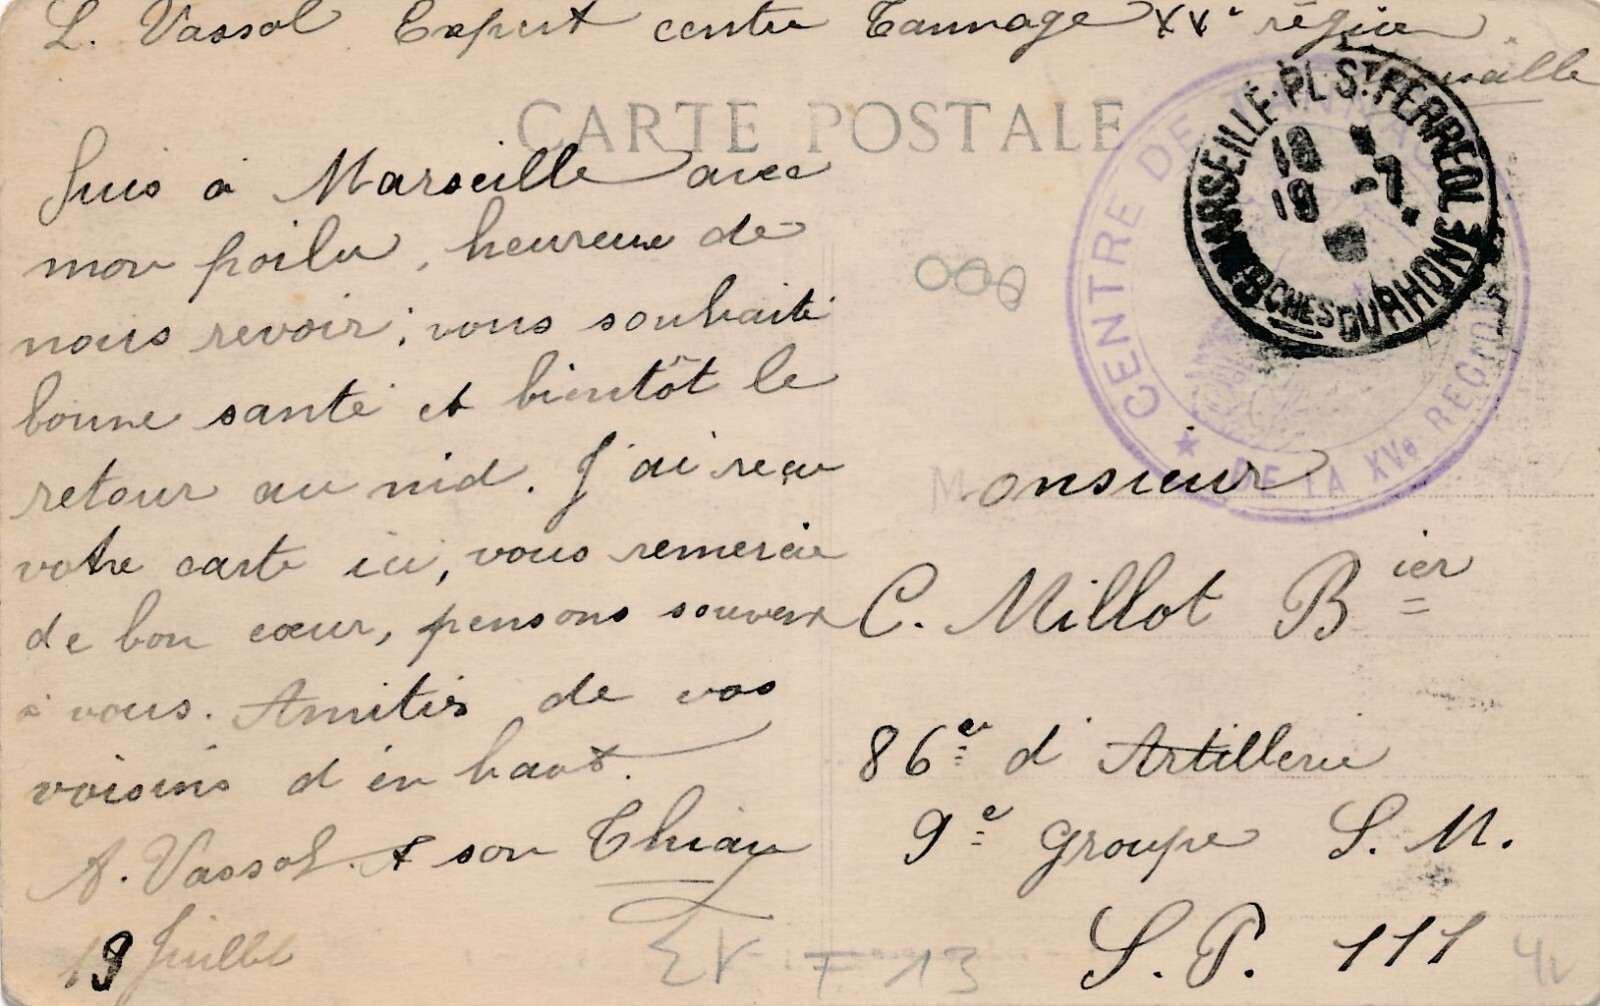 L. Vassol Expert centre Tannage XVe région
CARTE POSTALE
Suis à Marseille avec
mon poilu, heureuse de
nous revoir; vous souhaite
bonne santé et bientôt le
retour au nid. J'ai reçu
votre carte ici, vous remercie
de bon cœur, pensons souvent
à vous. Amitiés de vos
voisins d'en haut.
A. Vassol & son
19 Juillet
MARSEILLE·PL. ST FERREOL
BCHES DU RHONE
18 -7
CENTRE DE
DE LA XVe REGION
Monsieur
C. Millot Bier
86e d'Artillerie
9e Groupe S. M.
S. P. 111